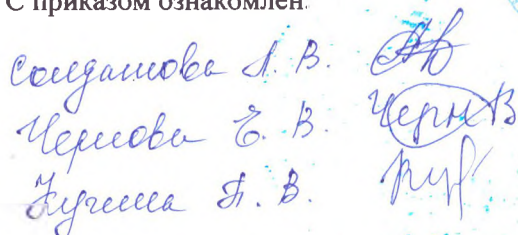 С приказом ознакомлен
Солдатова А. В.
Чернова Е. В. Черн В
Кучина Т. В. Куч